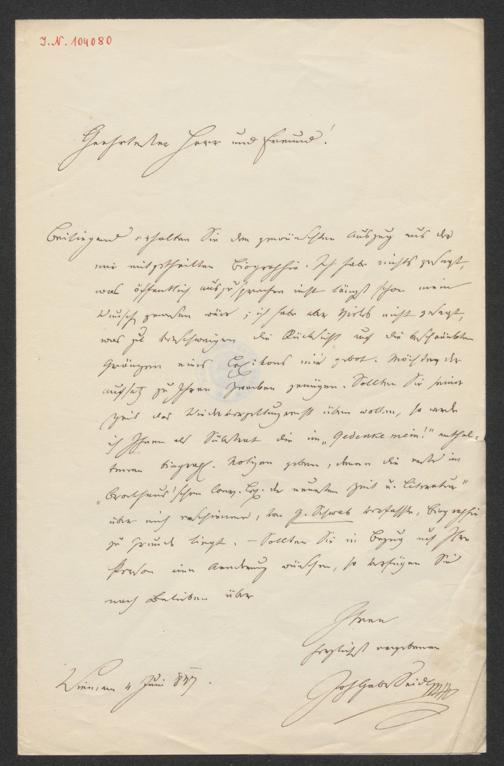 I.N. 104080
Geehrtester Herr und Freund!
Beiliegend erhalten Sie den gewünschten Auszug aus der
mir mitgetheilten Biographie. Ich habe nichts gesagt,
was öffentlich auszusprechen nicht längst schon mein
Wunsch gewesen wäre; ich habe aber Vieles nicht gesagt,
was zu verschweigen die Rücksicht auf die beschränkten
Gränzen eines Lexikons mir gebot. Möchte der
Aufsatz zu Ihren Zwecken genügen. Sollten Sie seiner
Zeit das Wiedervergeltungsrecht üben wollen, so werde
ich Ihnen als Substrat die im „Gedenke mein!" enthal-
tenen biograph. Notizen geben, denen die erste im
„Brockhaus'schen Conv. Lex. der neuesten Zeit u. Literatur"
über mich erschienene, von G. Schwab verfasste, Biographie
zu Grunde liegt. – Sollten Sie in Bezug auf Ihre
Person eine Aenderung wünschen, so verfügen Sie
nach Belieben über
Ihren
herzlichst ergebenen
Joh. Gabr. Seidl
Wien, am 4 Juni 847.